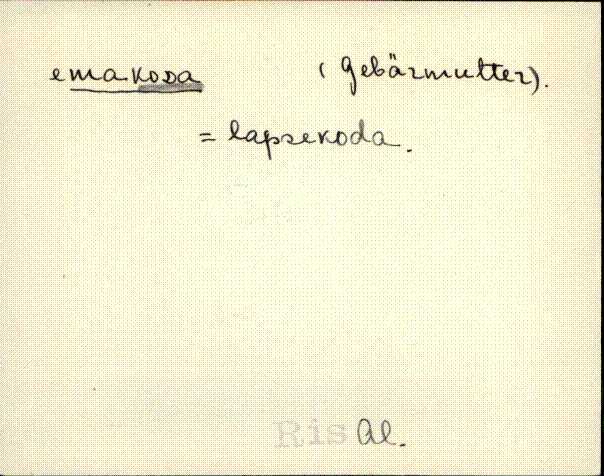 emakoda (Gebärmutter).
= lapsekoda.
Ris Al.